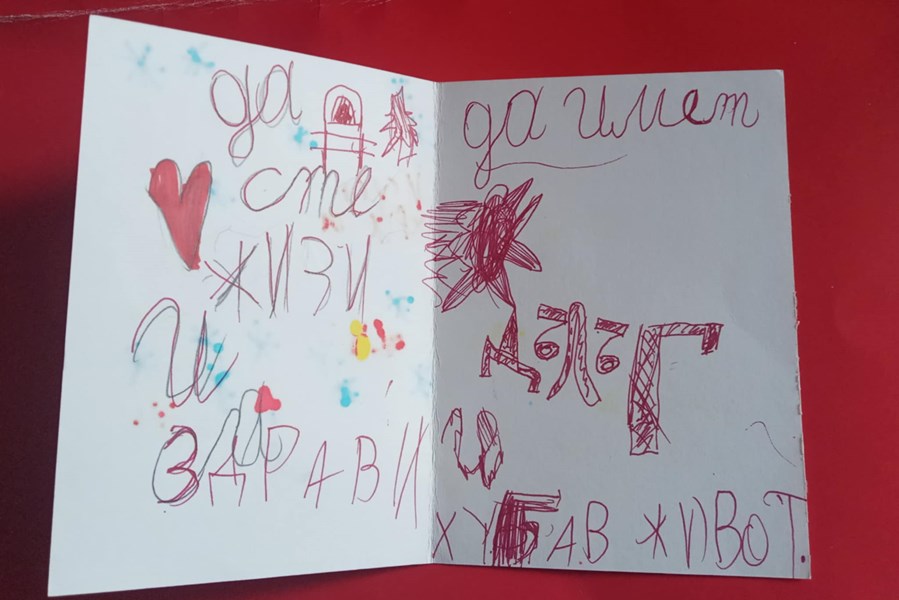 да
сте
ЖИЗИ
и
ЗДРАВИ
да имет
ДЪЛЪГ
и
ХУБАВ ЖИВОТ.